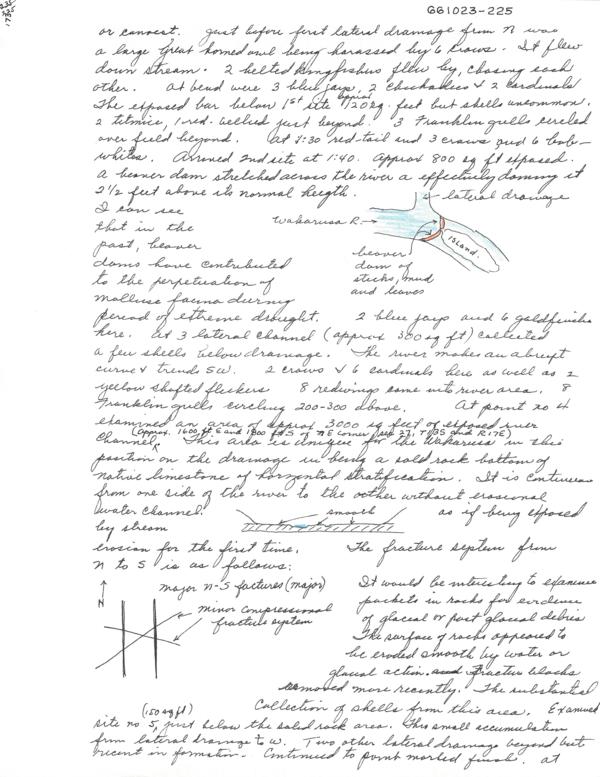 GG1023-225
or canvest. Just before first lateral drainage from N was
a large great horned owl being harassed by 6 crows. It flew
down stream. 2 belted kingfishers flew by, chasing each
other. At bend were 3 blue jays, 2 chickadees & 2 cardinals
The exposed bar below 1st site approx 120 sq. feet but shells uncommon.
2 titmice, 1 red-bellied just beyond. 3 Franklin gulls circled
over field beyond. At 1:30 red-tail and 3 crows and 6 bob-
whites. Arrived 2nd site at 1:40. Approx 800 sq ft exposed.
A beaver dam stretched across the river a effectively daming it
2 1/2 feet above its normal heigth.
lateral drainage
Wakarusa R.
ISLAND.
beaver
dam of
sticks, mud
and leaves
I can see
that in the
past, beaver
dams have contributed
to the perpetuation of
mollusc fauna during
period of extreme drought. 2 blue jays and 6 goldfinches
here. At 3 lateral channel (approx 300 sq ft) collected
a few shells below drainage. The river makes an abrupt
curve & trends SW. 2 crows & 6 cardinals here as well as 2
yellow shafted flickers 8 redwings came into river area. 8
Franklin gulls circling 200-300 above. At point no 4
examined an area of approx 3000 sq feet of exposed river
(Approx. 1600 ft E and 1800 ft S of NE corner, sec 27, T13S and R17E)
channel. This area is unique for the Wakarusa in this
position on the drainage in being a solid rock bottom of
native limestone of horizontal stratification. It is continuous
from one side of the river to the oother without erosional
water channel. smooth as if being exposed
by stream
erosion for the first time. The fracture system from
N to S is as follows:
N
major N-S factures (major)
minor compressional
fracture system
It would be interesting to examine
pockets in rocks for evidence
of glacial or post glacial debris
The surface of rocks appeared to
be eroded smooth by water or
glacial action. and fracture blocks
removed more recently. The substantial
Collection of shells from this area. Examined
(150 sq ft)
site no 5, just below the solid rock area. This small accumulation
from lateral drainage to W. Two other lateral drainage beyond but
recent in formation. Continued to point marked finish. At